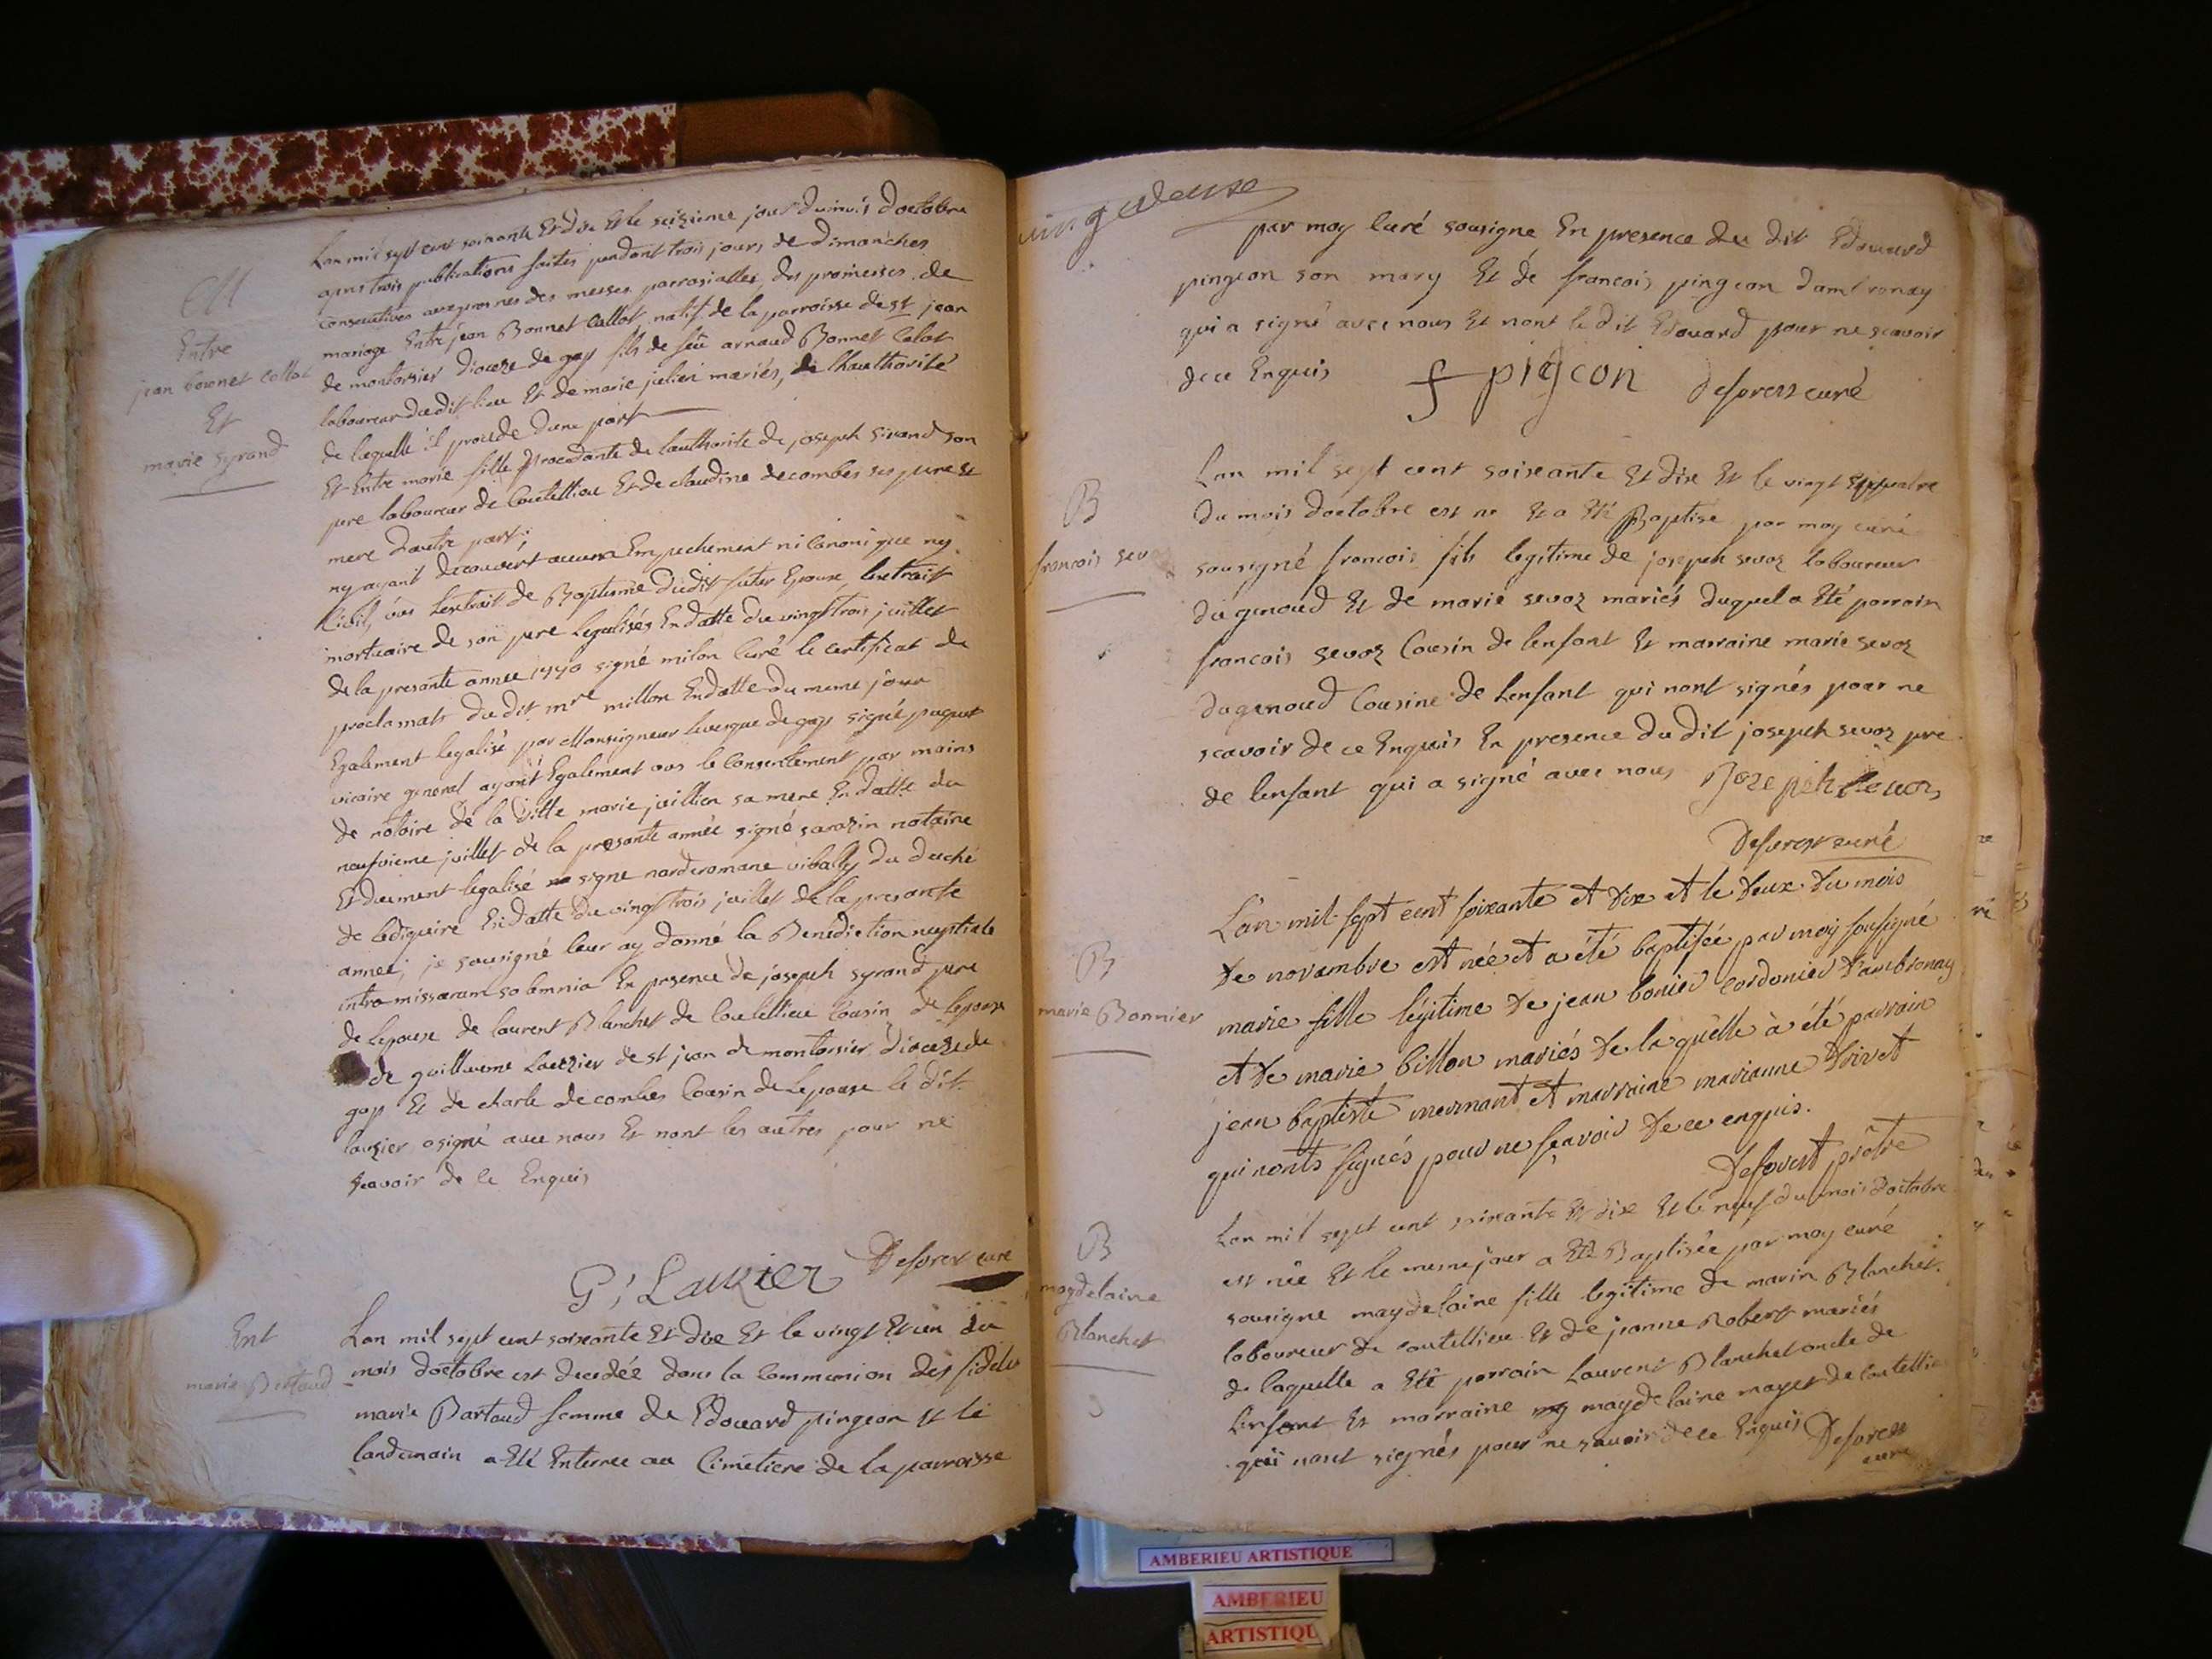 M
Entre
jean bonnet Callot
Et
marie syrand
Lan mil sept cent soixante Et dix Et le seizieme jour du mois doctobre
apres trois publications faites pendant trois jours de dimanches
consecutives aux prones des messes parrosialles, des promesses de
mariage Entre jean Bonnet Callot natif de la parroisse de st jean
de montorsier dioceze de gap fils de feü arnaud Bonnet Calot
laboureur du dit lieu Et de marie julien mariés, de lhauthorité
de laquelle il procede dune part
Et Entre marie fille procedante de lauthorite de joseph sirand son
pere laboureur de Coutellieu Et de claudine decombes ses pere et
mere dautre part;
ny ayant decouvert aucun Empechement ni Canonique ny
Civil, vûs Lextrait de Baptisme du dit futur Epoux, lextrait
mortuaire de son pere legalisés En datte du vingt trois juillet
de la presante année 1770 signé milon Curé le certificat de
proclamats du dit mre millon En datte du meme jour
Egalement legalisé par Monseigneur leveque de gap signé paquet
vicaire general ayant Egalement vus le Consentement par mains
de notaire de la ditte marie juillien sa mere En datte du
neufvieme juillet de la presante année signé sarazin notaire
Et dument legalisé signe nardoromane vibally du duché
de lediguiere En datte du vingt trois juillet de la presante
année; je sousigné leur ay donné la Benediction nuptiale
intra missarum solemnia En presence de joseph syrand pere
de Lepouse de laurent Blanchet de Coutellieu Cousin de lepouse
de guillaume Lauzier de st jean de montorsier dioceze de
gap Et de charle decombes Cousin de Lepouse le dit
lauzier a signé avec nous Et nont les autres pour ne
scavoir de ce Enquis
G, Lauzier Deforest curé
Ent
marie Bertaud
Lan mil sept cent soixante Et dix Et le vingt Et un du
mois doctobre est decedée dans la Communion des fideles
marie Bartaud femme de Edouard pingeon Et le
landemain a Eté Enterree au Cimetiere de la parroisse
vingt deuse
par moy Curé sousigne En presence du dit Edouard
pingeon son mary Et de francois pingeon dambronay
qui a signé avec nous Et nont le dit Edouard pour ne scavoir
de ce Enquis f pigeon deforest curé
B
francois sevoz
Lan mil sept cent soixante Et dix Et le vingt Et quatre
du mois doctobre est ne Et a Eté Baptise par moy curé
sousigné francois fils legitime de joseph sevoz laboureur
du genoud Et de marie sevoz mariés duquel a Eté parrain
francois sevoz Cousin de lenfant Et marraine marie sevoz
du genoud Cousine de Lenfant qui nont signés pour ne
scavoir de ce Enquis En presence du dit joseph sevoz pere
de lenfant qui a signé avec nous Jozepeh sevoz
Deforest curé
B
marie Bonnier
L'an mil sept cent soixante et dix et le deux du mois
de novambre est née et a été baptisée par moy sousigné
marie fille légitime de jean bonier cordonier d'ambronay
et de marie billon mariés de laquelle à été parrain
jean baptiste mermant et marraine marianne Drivet
qui nonts signés pour ne sçavoir de ce enquis.
Deforest prêtre
B
magdelaine
Blanchet
Lan mil sept cent soixante Et dix Et le neuf du mois doctobre
est née Et le meme jour a Eté Baptisée par moy curé
sousigne magdelaine fille legitime de marin Blanchet
laboureur de coutellieu Et de jeanne Robert mariés
de laquelle a Eté parrain Laurent Blanchet oncle de
Lenfant Et marraine magdelaine mayet de Coutellie
qui nont signés pour ne scavoir de ce Enquis Deforest
curé
AMBERIEU ARTISTIQUE
AMBERIEU
ARTISTIQU